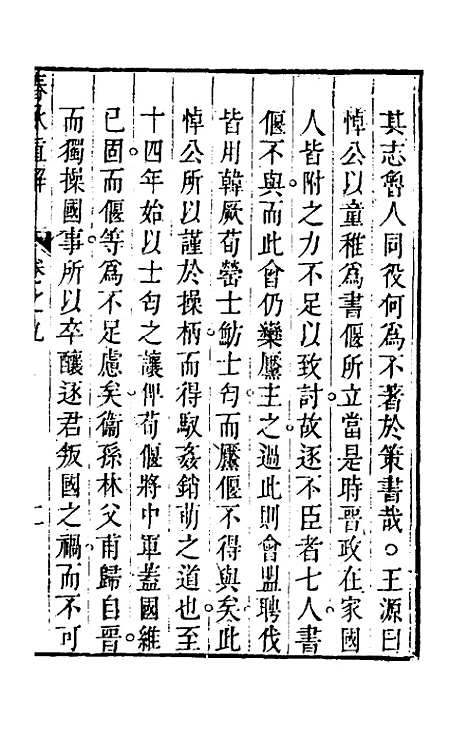 其志魯人同役何為不著於策書哉○王源曰
悼公以童稚為書偃所立當是時晉政在家國
人皆附之力不足以致討故逐不臣者七人書
偃不與而此會仍欒黶主之過此則會盟聘伐
皆用韓厥荀罃士魴士匄而黶偃不得與矣此
悼公所以謹於操柄而得馭姦銷萌之道也至
十四年始以士匄之讓俾荀偃將中軍蓋國維
已固而偃等為不足慮矣衞孫林父甫歸自晉
而獨操國事所以卒釀逐君叛國之禍而不可
春秋直解
卷之九
二